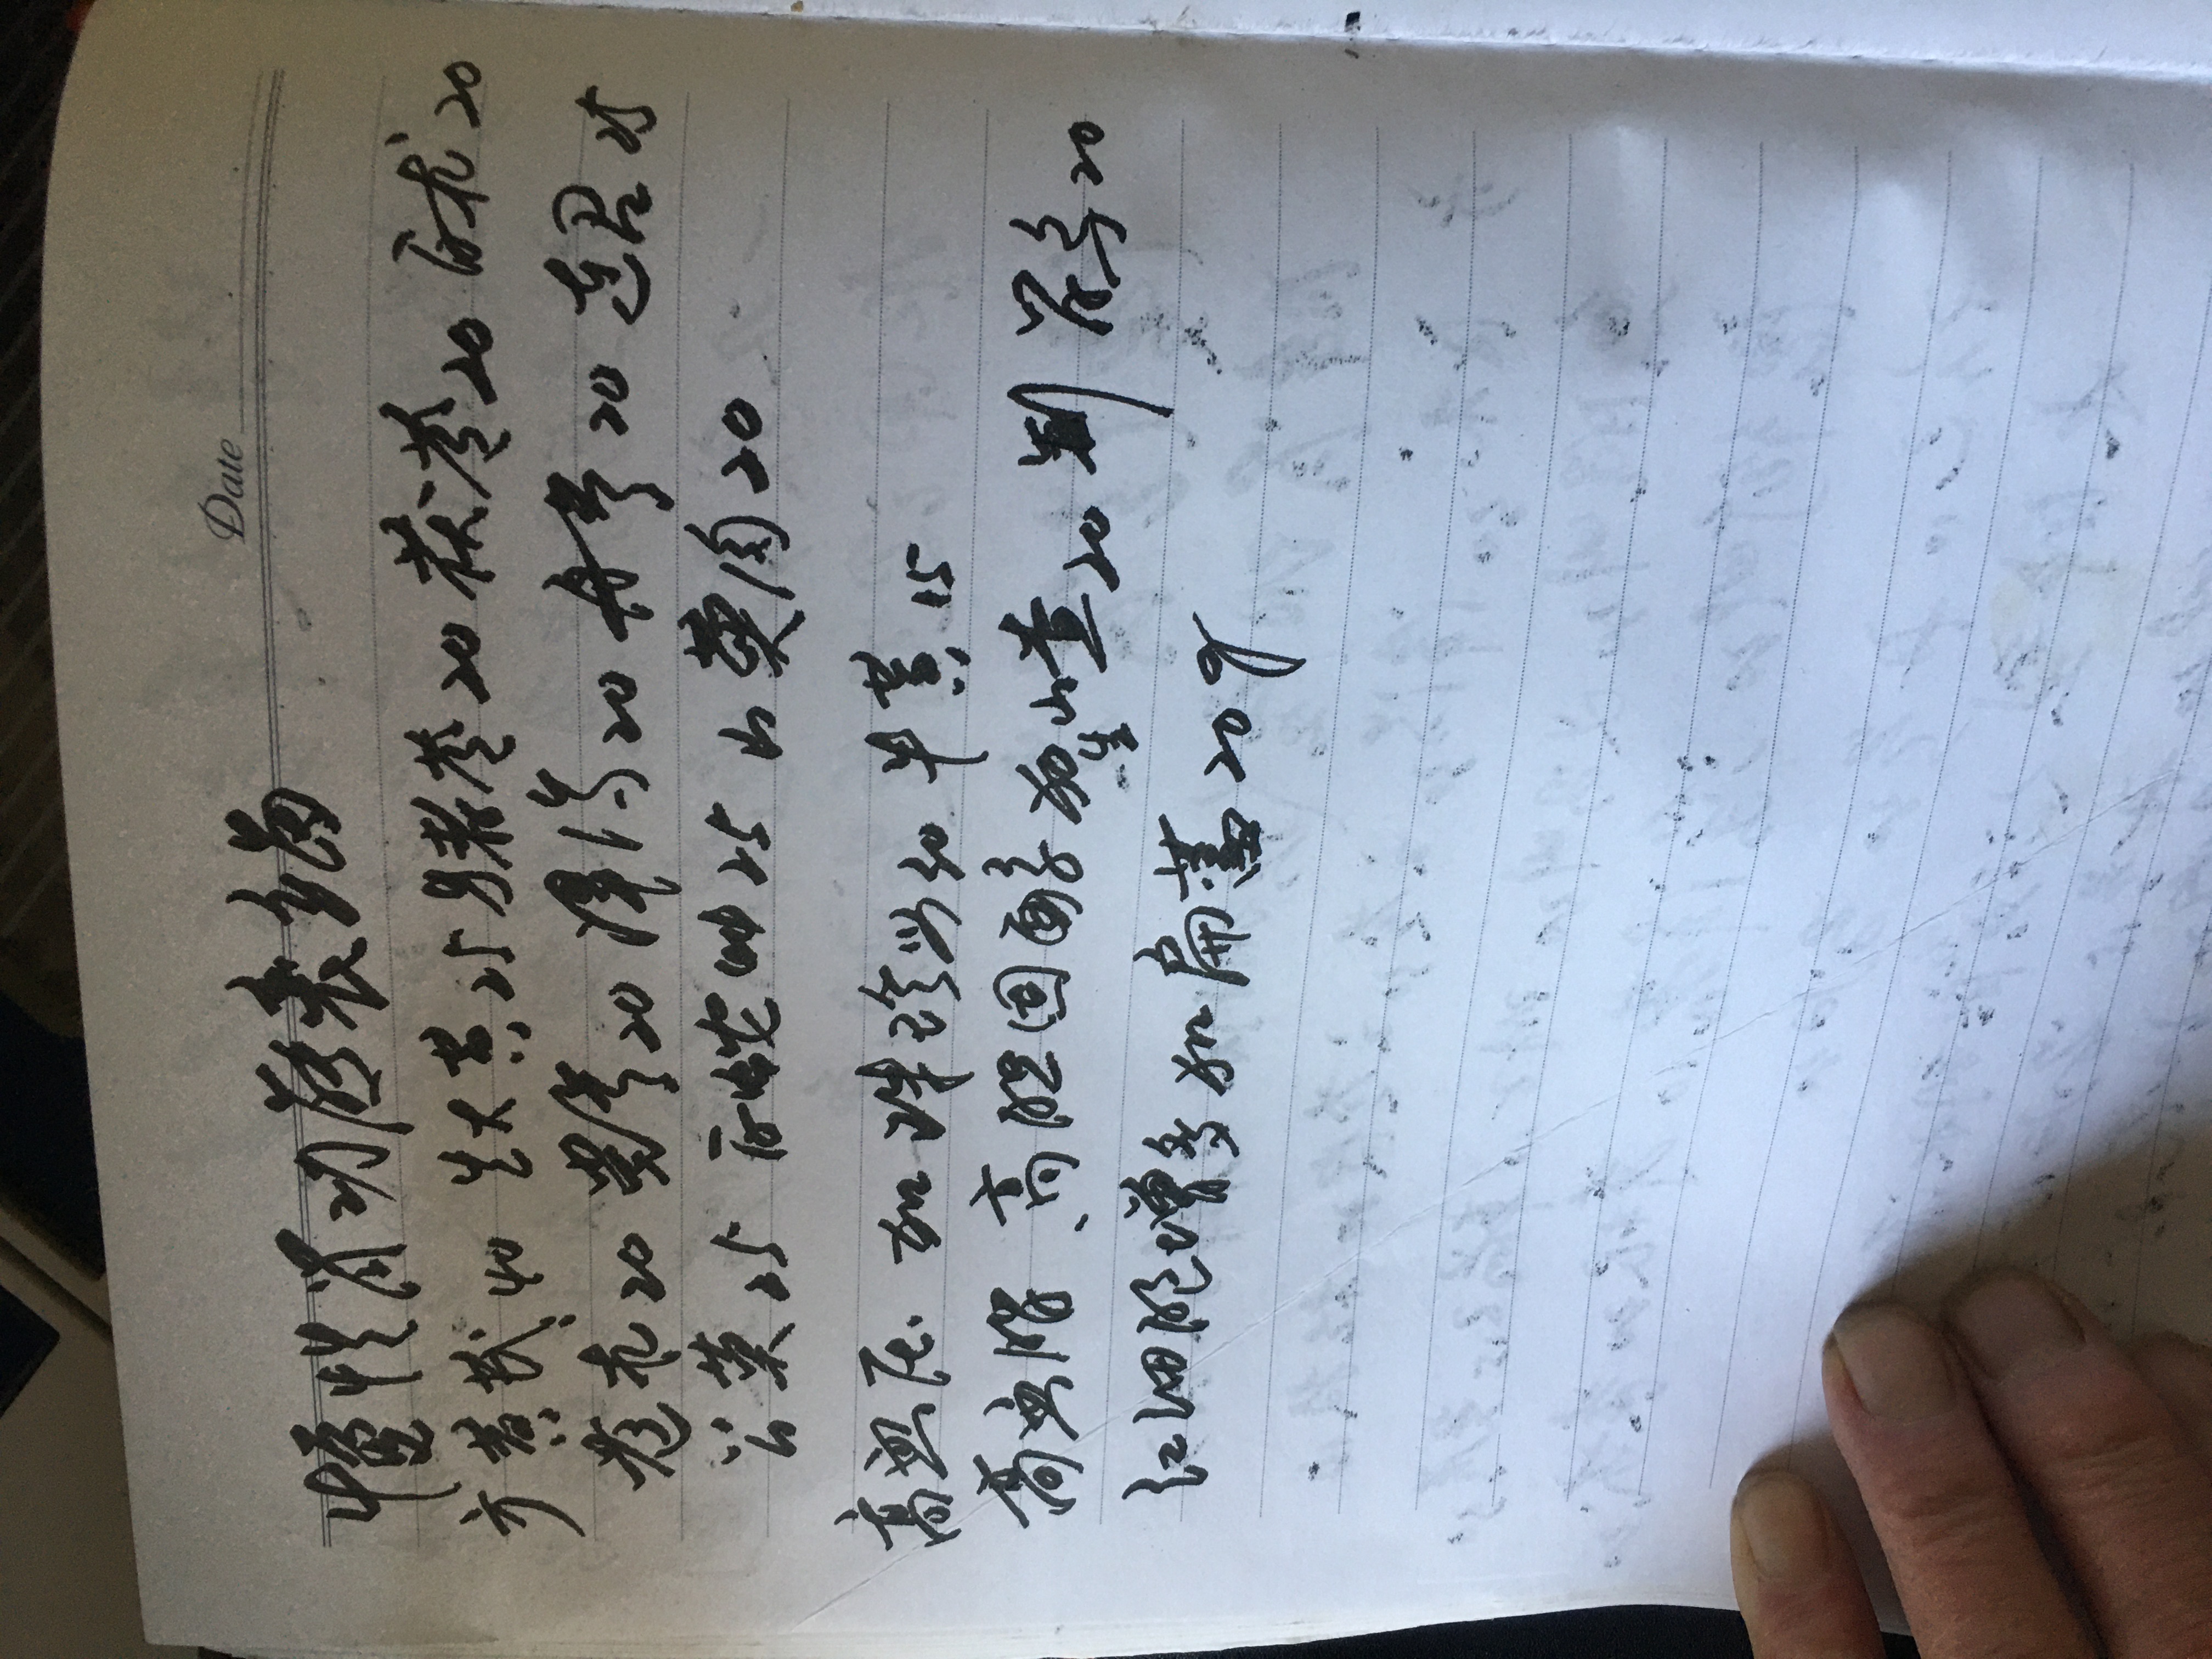 Date
慢性肾功能衰竭
方 黄芪40 生大黄25 猪苓20 茯苓20 白术20
苍术20 党参20 泽泻20 丹参20 连召25
公英25 白蛇 25 山萸肉20
高血压 加 珍 30 牛黄15
高血脂、高胆固醇 加生山查20 制首乌20
红细胞增多加 扁蓄20g